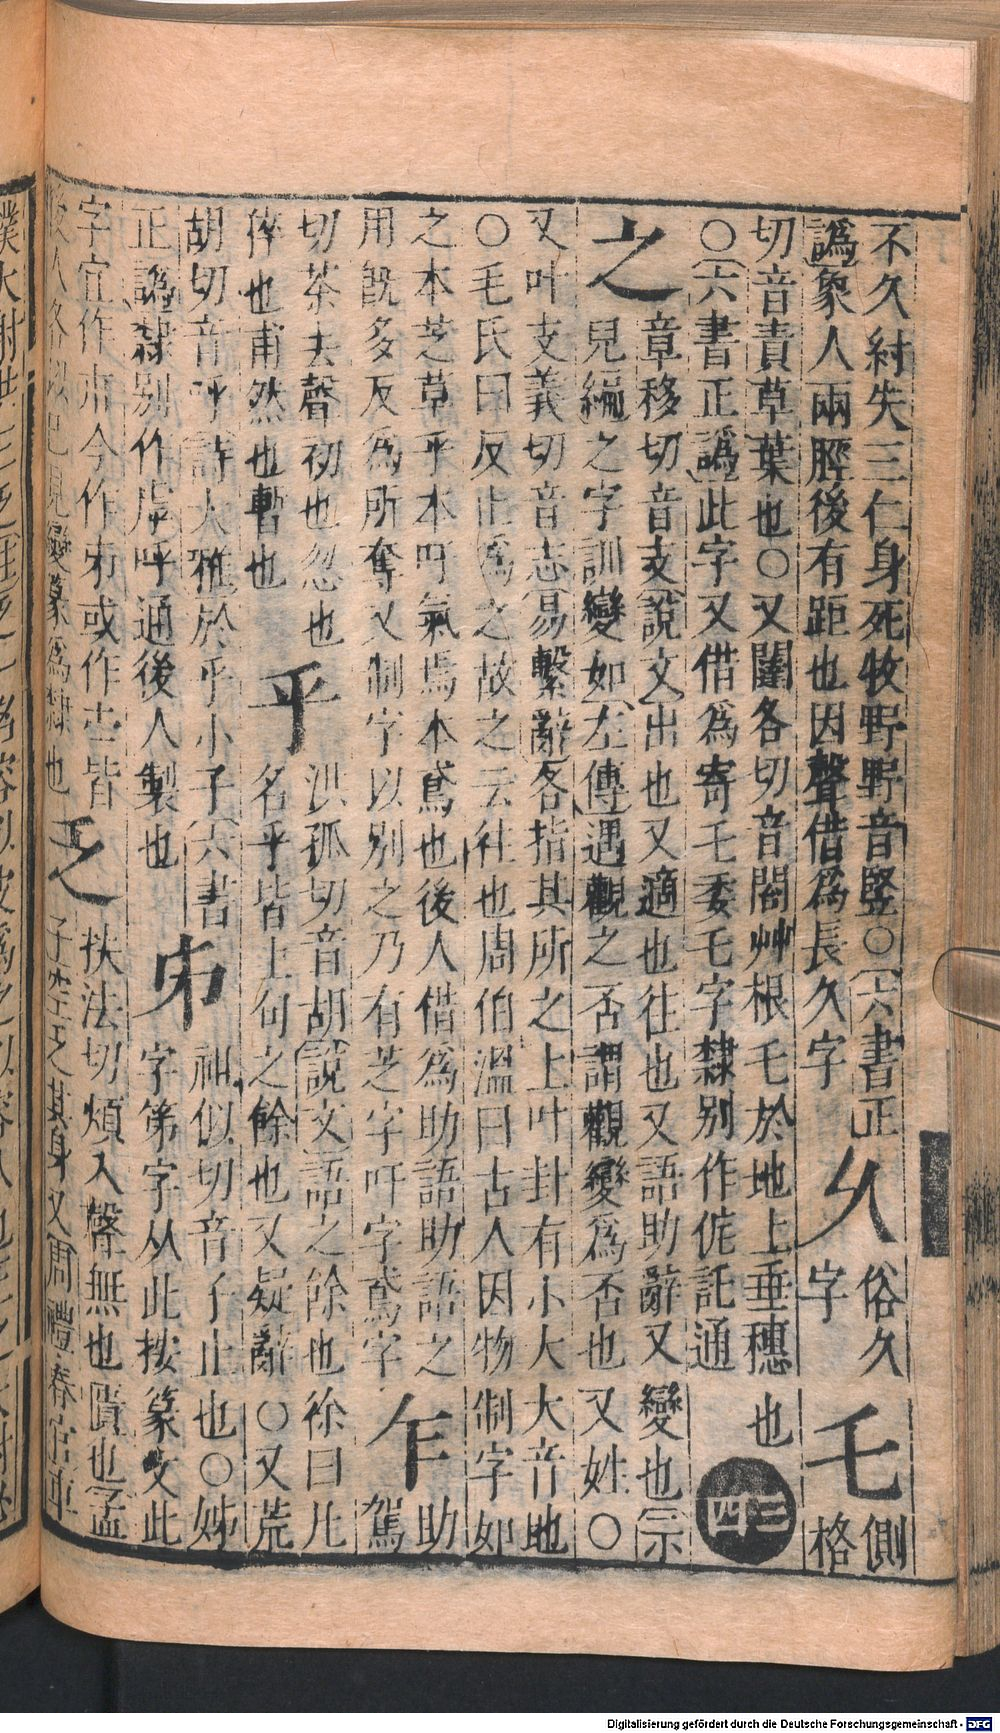 不久紂失三仁身死牧野野音豎○六書正
譌象人兩脛後有距也因聲借爲長久字
乆
俗久
字
乇
側格
切音責草葉也○又闥各切音閣艸根乇於地上垂穗也
○六書正譌此字又借爲寄乇委乇字隸别作侂託通
三
四
之
章移切音支說文出也又適也往也又語助辭又變也宗
見緬之字訓變如左傳遇觀之否謂觀變爲否也又姓○
又叶支義切音志易繫辭各指其所之上叶卦有小大大音地
○毛氏曰反止爲之故之云徃也周伯溫曰古人因物制字如
之本芝草乎本吁氣焉本鳶也後人借爲助語助語之助
用旣多反爲所奪又制字以别之乃有芝字吁字鳶字
乍
駕
切茶去聲初也忽也
倅也甫然也暫也
乎
洪孤切音胡說文語之餘也徐曰凡
名乎皆上句之餘也又疑辭○又荒
胡切音呼詩大雅於乎小子六書
正譌隸别作虖呼通後人製也
𠂔
祖似切音子止也○姊
字第字从此按篆文此
字宜作𠂔今作𠂔或作
皆
後人
已見變篆爲隸也
乏
扶法切煩入聲無也匱也孟
子空乏其身又周禮春官車